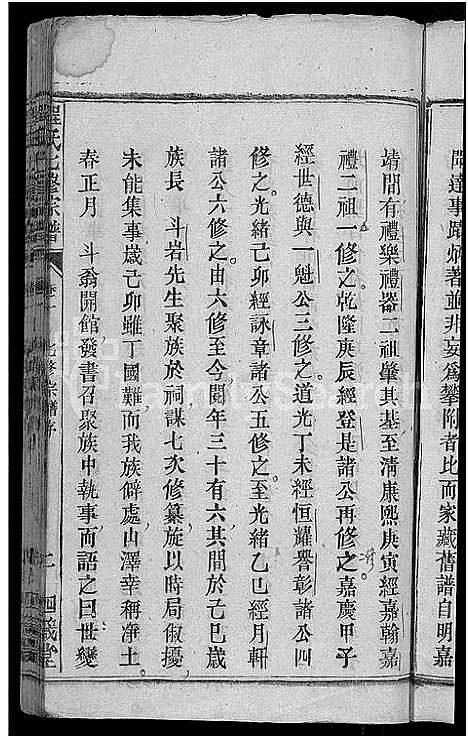 間達事蹟炳著並非妄爲攀附者比而家藏舊譜自明嘉
靖間有禮樂禮器二祖肇其基至清康熙庚寅經嘉翰嘉
禮二祖一修之乾隆庚辰經登是諸公再修之嘉慶甲子
二修
經世德與一魁公三修之道光丁未經恒耀譽彰諸公四
修之光緒己卯經詠章諸公五修之至光緒乙巳經月軒
諸公六修之由六修至今閱年三十有六其間於己巳歲
族長 斗岩先生聚族於祠謀七次修纂旋以時局俶擾
未能集事歲己卯雖丁國難而我族僻處山澤幸稱淨土
春正月 斗翁開館發書召聚族中執事而語之曰世變
氏七修宗譜 卷一 七修宗譜序 二 迴羲堂
FamilySearch